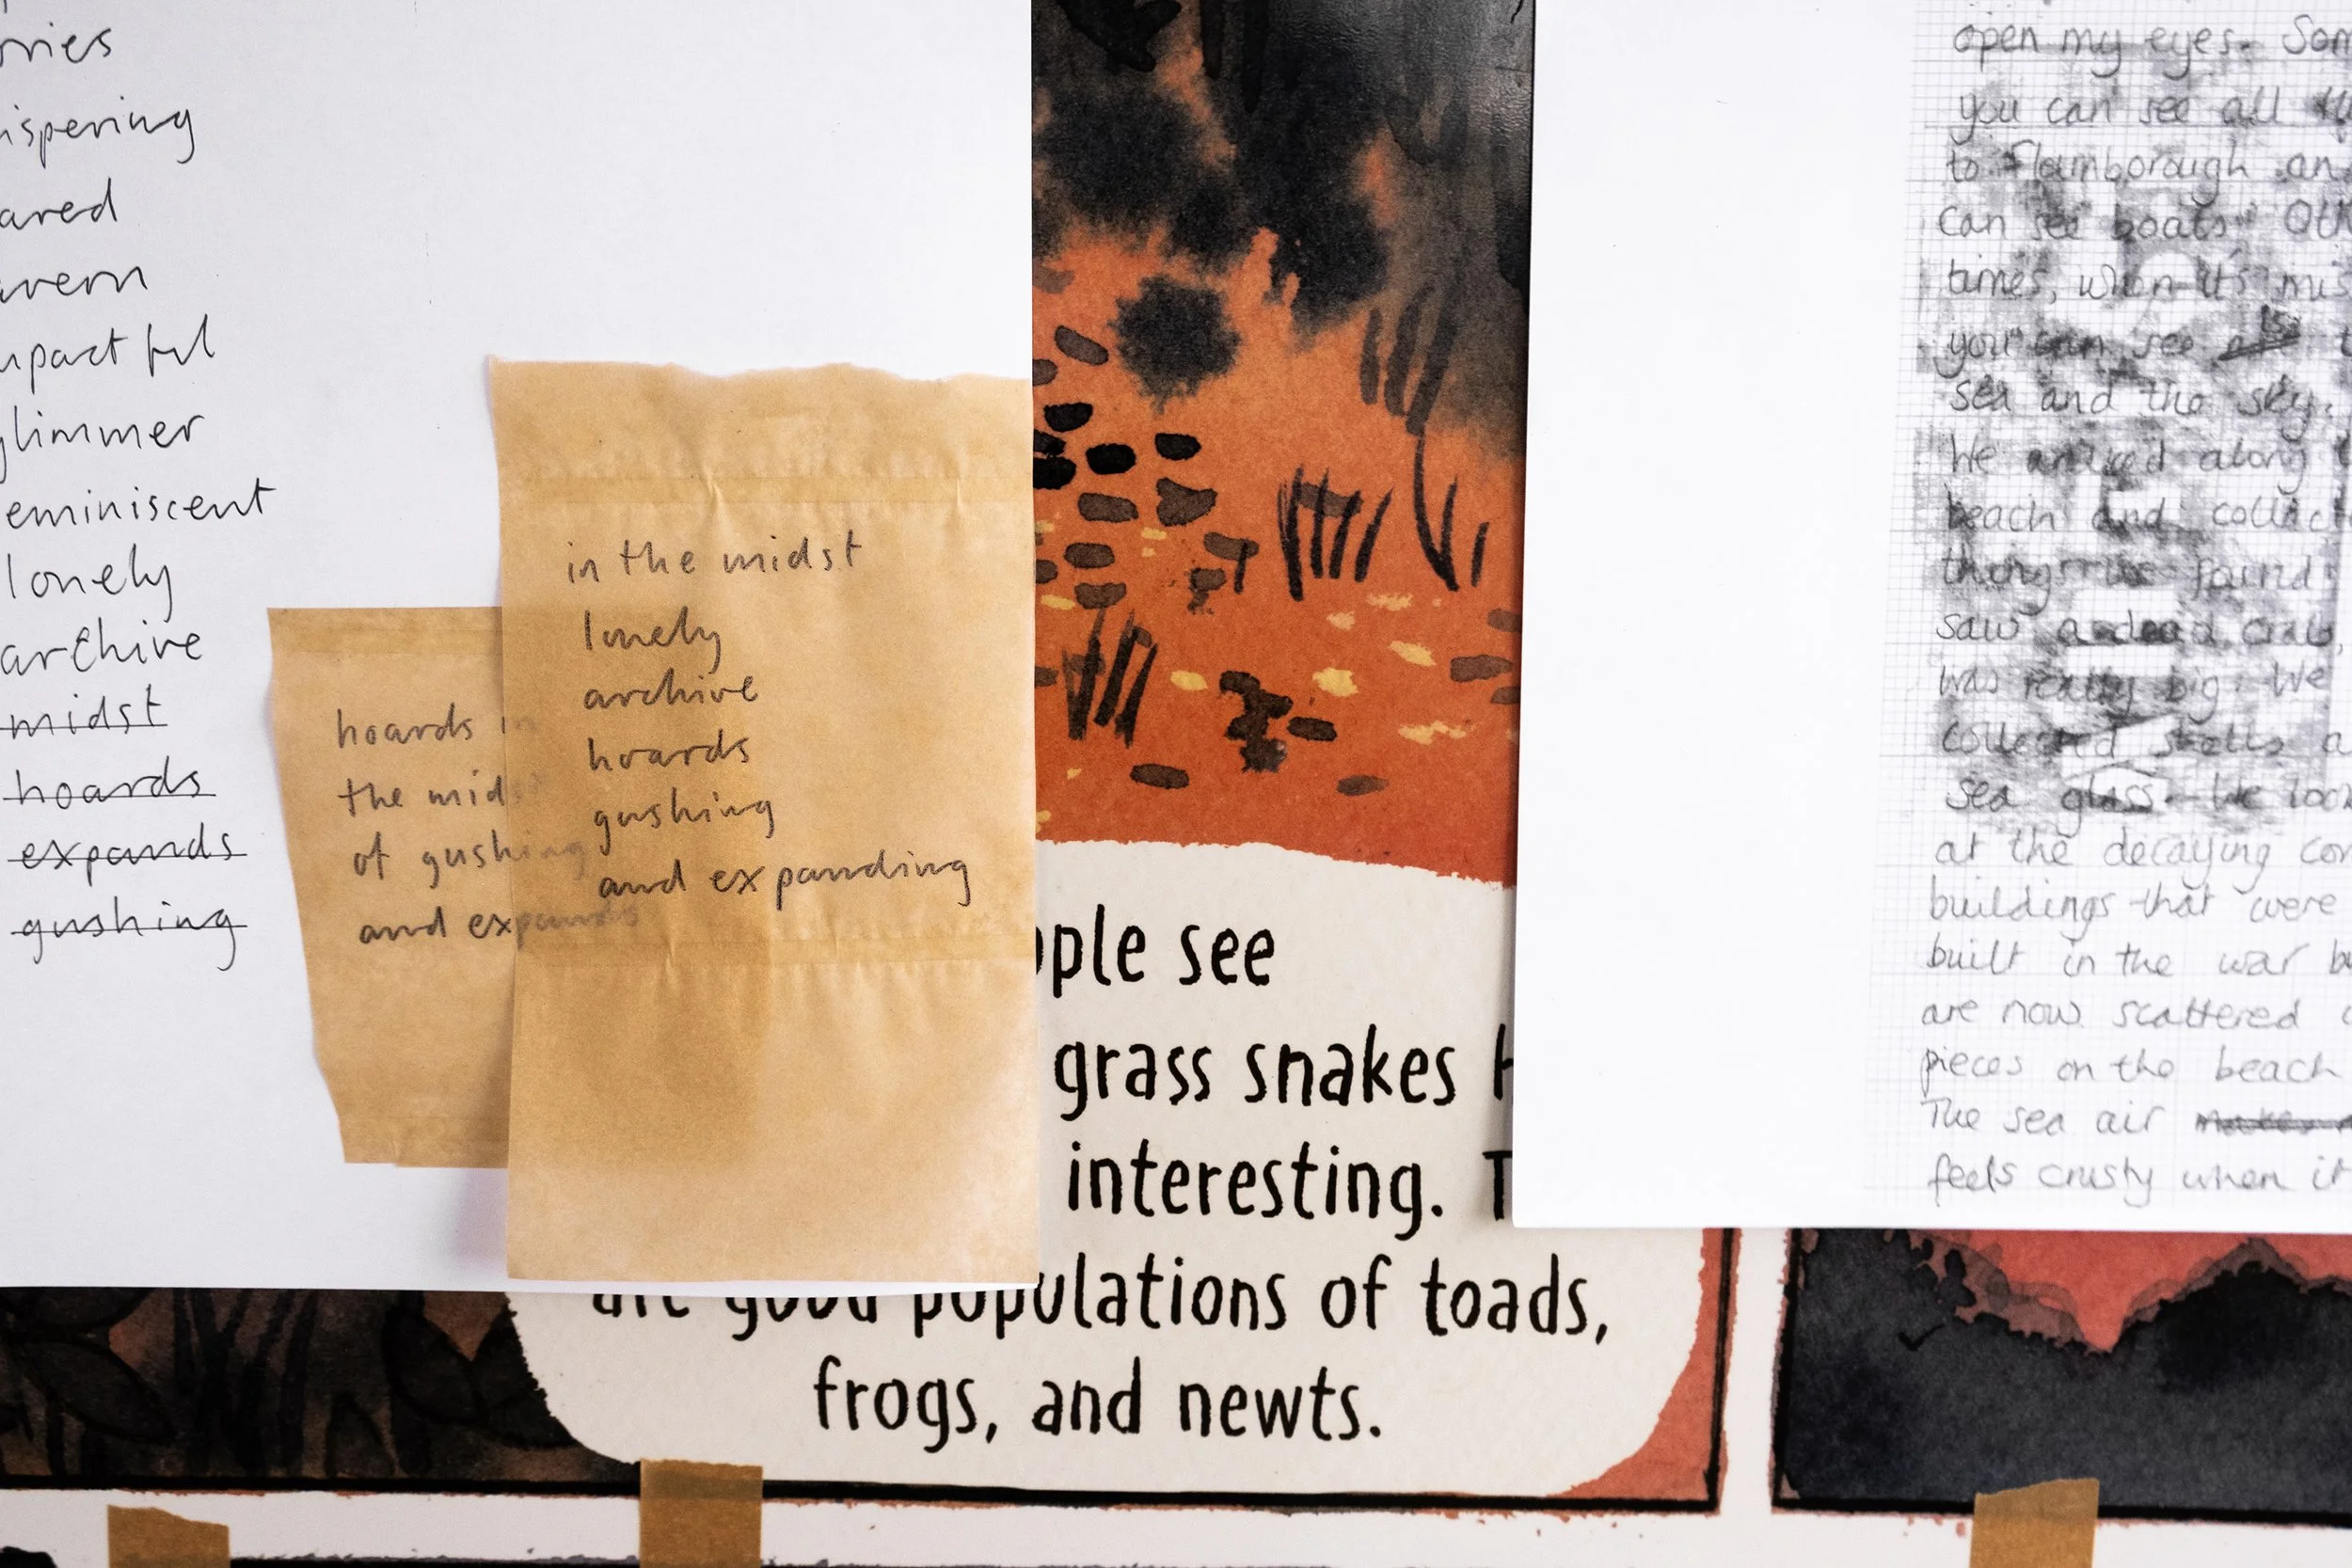 ories
ispering
ared
avern
mpactful
glimmer
eminiscent
lonely
archive
midst
hoards
expands
gushing
hoards in
the mids
of gushing
and expands
in the midst
lonely
archive
hoards
gushing
and expanding
ople see
grass snakes h
interesting. T
are good populations of toads,
frogs, and newts.
open my eyes. Som
you can see all th
to Flamborough an
can see boats. Oth
times, when it's mis
you can see is
sea and the sky.
We walked along
beach and collect
things we found
saw a dead crab,
was really big. We
collected shells a
sea glass. We look
at the decaying con
buildings that were
built in the war bu
are now scattered
pieces on the beach
The sea air makes
feels crusty when it